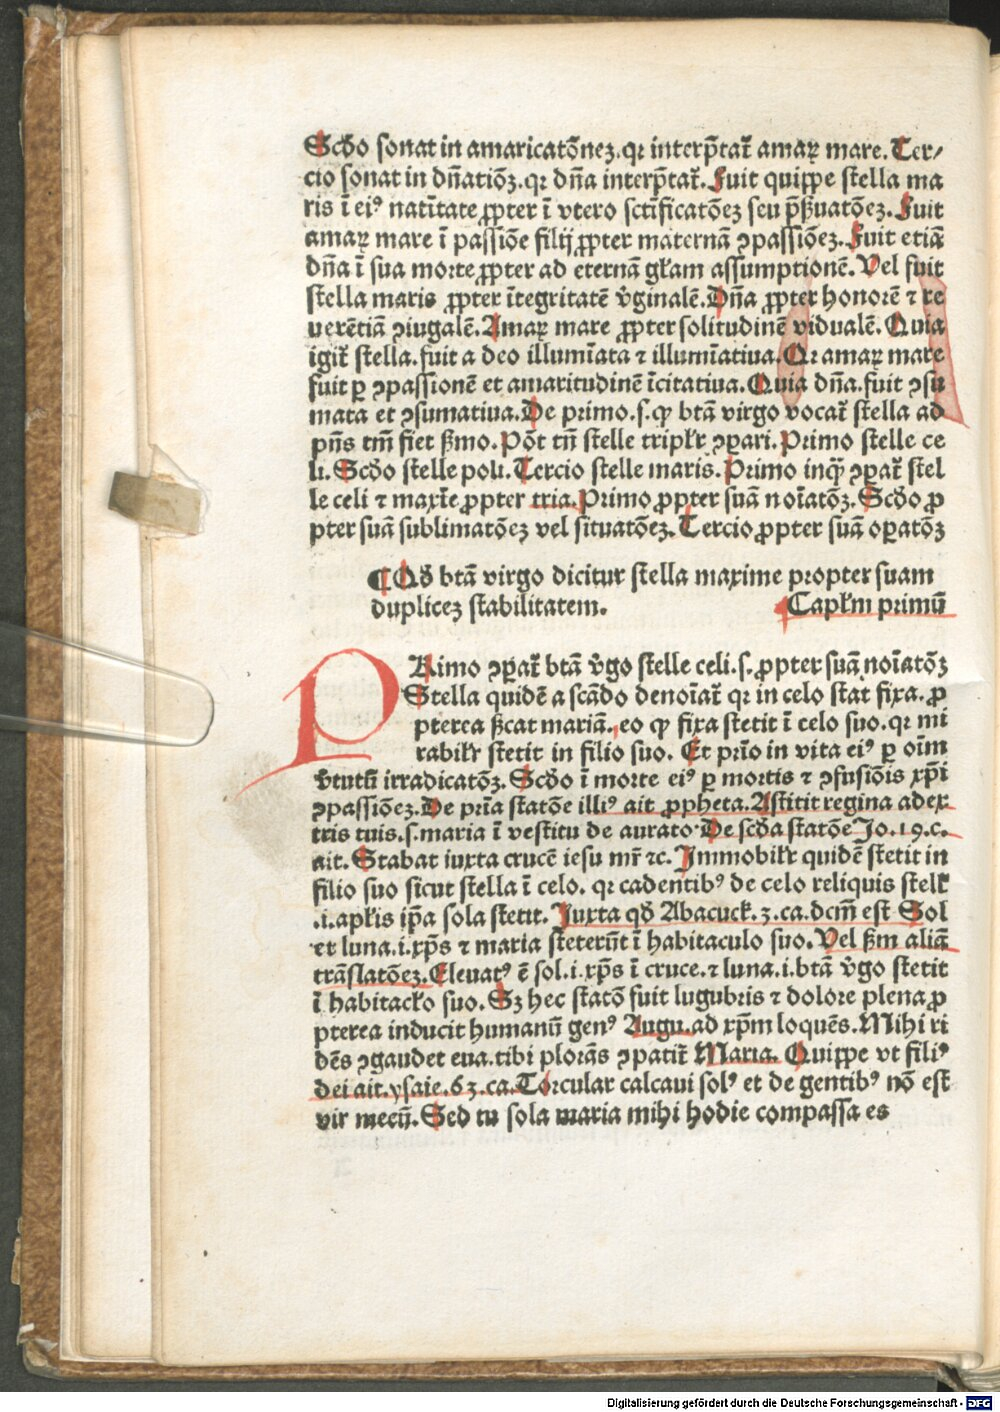 Scḋo sonat in amaricatõneʒ.qꝛ interp̃tat᷑ amaꝝ mare. Ter⸗
cio sonat in dñatiõʒ.qꝛ dña interp̃tat᷑. Fuit quippe stella ma
ris ĩ eiꝰ natĩtate ꝓpter ĩ vtero sctĩficatõeʒ seu p̃ẞuatõeʒ. Fuit
amaꝝ mare ĩ passiõe filij ꝓpter maternã ꝯpassiõeʒ. Fuit etiã
dña ĩ sua morte ꝓpter ad eternã gl̃am assumptionẽ. Vel fuit
stella maris ꝓpter ĩtegritatẽ v̓ginalẽ. Dña ꝓpter honorẽ ⁊ re
uerẽtiã ꝯiugalẽ. Amaꝝ mare ꝓpter solitudinẽ vidualẽ. Quia
igit᷑ stella. fuit a deo illumĩata ⁊ illumĩatiua. Qꝛ amaꝝ mare
fuit ꝑ ꝯpassionẽ et amaritudinẽ ĩcitatiua. Quia dña. fuit ꝯsu
mata et ꝯsumatiua. De primo.s.ꝙ btã virgo vocat᷑ stella ad
pñs tm̃ fiet ẞmo. Põt tñ stelle triplr̓ ꝯpari. Primo stelle ce
li. Scḋo stelle poli. Tercio stelle maris. Primo inqͣ̃ ꝯpat᷑ stel
le celi ⁊ maxĩe ꝓpter tria. Primo ꝓpter suã noĩatõʒ. Scḋo ꝓ
pter suã sublimatõeʒ vel situatõeʒ. Tercio ꝓpter suã oꝑatõʒ
¶ Qḋ btã virgo dicitur stella maxime propter suam
dupliceʒ stabilitatem. Capl̓m primũ
PRimo ꝯꝑat᷑ btã v̓go stelle celi.s. ꝓpter suã noĩatõʒ
Stella quidẽ a stãdo denoĩat᷑ qꝛ in celo stat fixa. ꝓ
pterea ẞcat mariã, eo ꝙ fixa stetit ĩ celo suo. qꝛ mi
rabilr̓ stetit in filio suo. Et prĩo in vita eiꝰ ꝑ oĩm
v̓tutũ irradicatõʒ. Scḋo ĩ morte eiꝰ ꝑ mortis ⁊ ꝯfusiõis xp̃i
ꝯpassiõeʒ. De prĩa statõe illiꝰ ait ꝓpheta. Astitit regina a dex
tris tuis.s.maria ĩ vestitu de aurato. De scḋa statõe Jo.19.c.
ait. Stabat iuxta crucẽ iesu mr̃ ⁊c. Jmmobilr̓ quidẽ stetit in
filio suo sicut stella ĩ celo. qꝛ cadentibꝰ de celo reliquis stell̓
.i.apl̓is ip̃a sola stetit. Juxta qḋ Abacuck.3.ca.dcm̃ est Sol
et luna.i.xp̃s ⁊ maria steterũt ĩ habitaculo suo. Vel ẞm aliã
trãslatõeʒ. Eleuatꝰ ẽ sol.i.xp̃s ĩ cruce.⁊ luna.i.btã v̓go stetit
ĩ habitacl̓o suo. Sʒ hec statõ fuit lugubris ⁊ dolore plena ꝓ
pterea inducit humanũ genꝰ Augu.ad xp̃m loquẽs. Mihi ri
dẽs ꝯgaudet eua.tibi plorãs ꝯpatit᷑ Maria. Quippe vt filiꝰ
dei ait.ysaie.63.ca.Torcular calcaui solꝰ et de gentibꝰ nõ est
vir mecũ. Sed tu sola maria mihi hodie compassa es
Digitalisierung gefördert durch die Deutsche Forschungsgemeinschaft - DFG